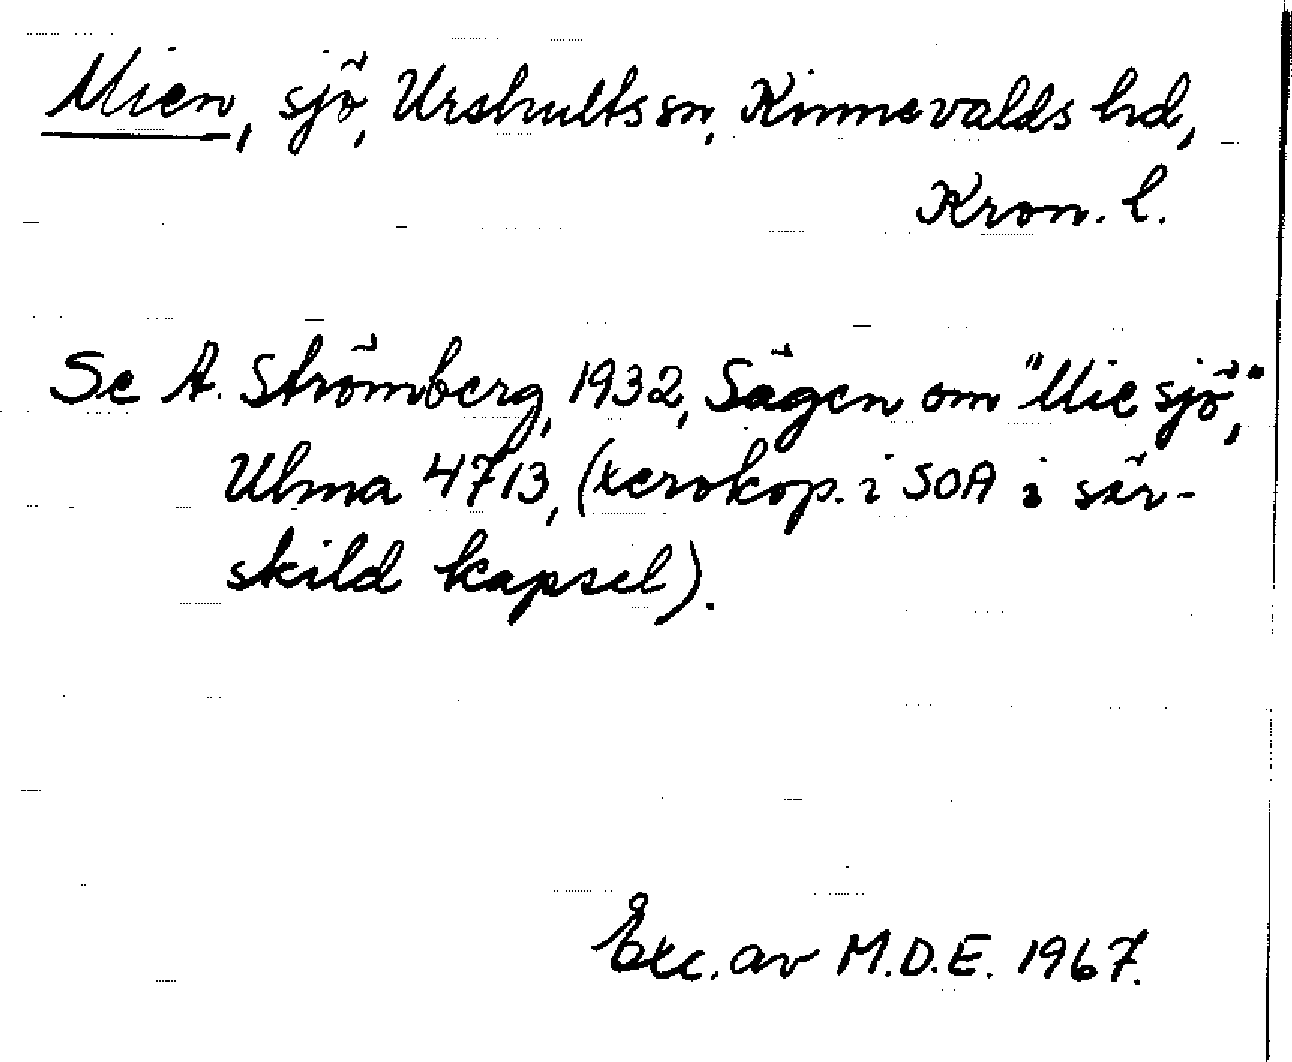 Mien, sjö, Urshults sn, Kinnevalds hd,
Kron. l.
Se A. Strömberg, 1932, Sägen om "Mie sjö",
Ulma 4713, (xerokop. i SOA i sär-
skild kapsel).
Exc. av M.D.E. 1967.